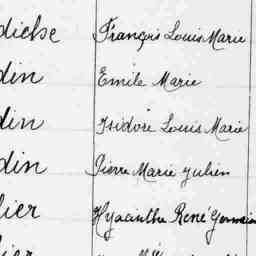 dielse François Louis Marie
din Emile Marie
din Isidore Louis Marie
din Pierre Marie Julien
lier Hyacinthe René Germain
lier